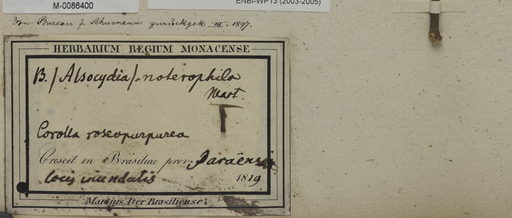 M-0086400
ENBI-WP13 (2003-2005)
Von Bureau & Schumann zurückgek. III. 1897.
HERBARIUM REGIUM MONACENSE
B. / Alsocydia / noterophila
Mart.
T
Corolla roseopurpurea
Crescit in Brasiliae prov. Paraëns
Locis inundatis 1819
Martius Iter Brasiliense.